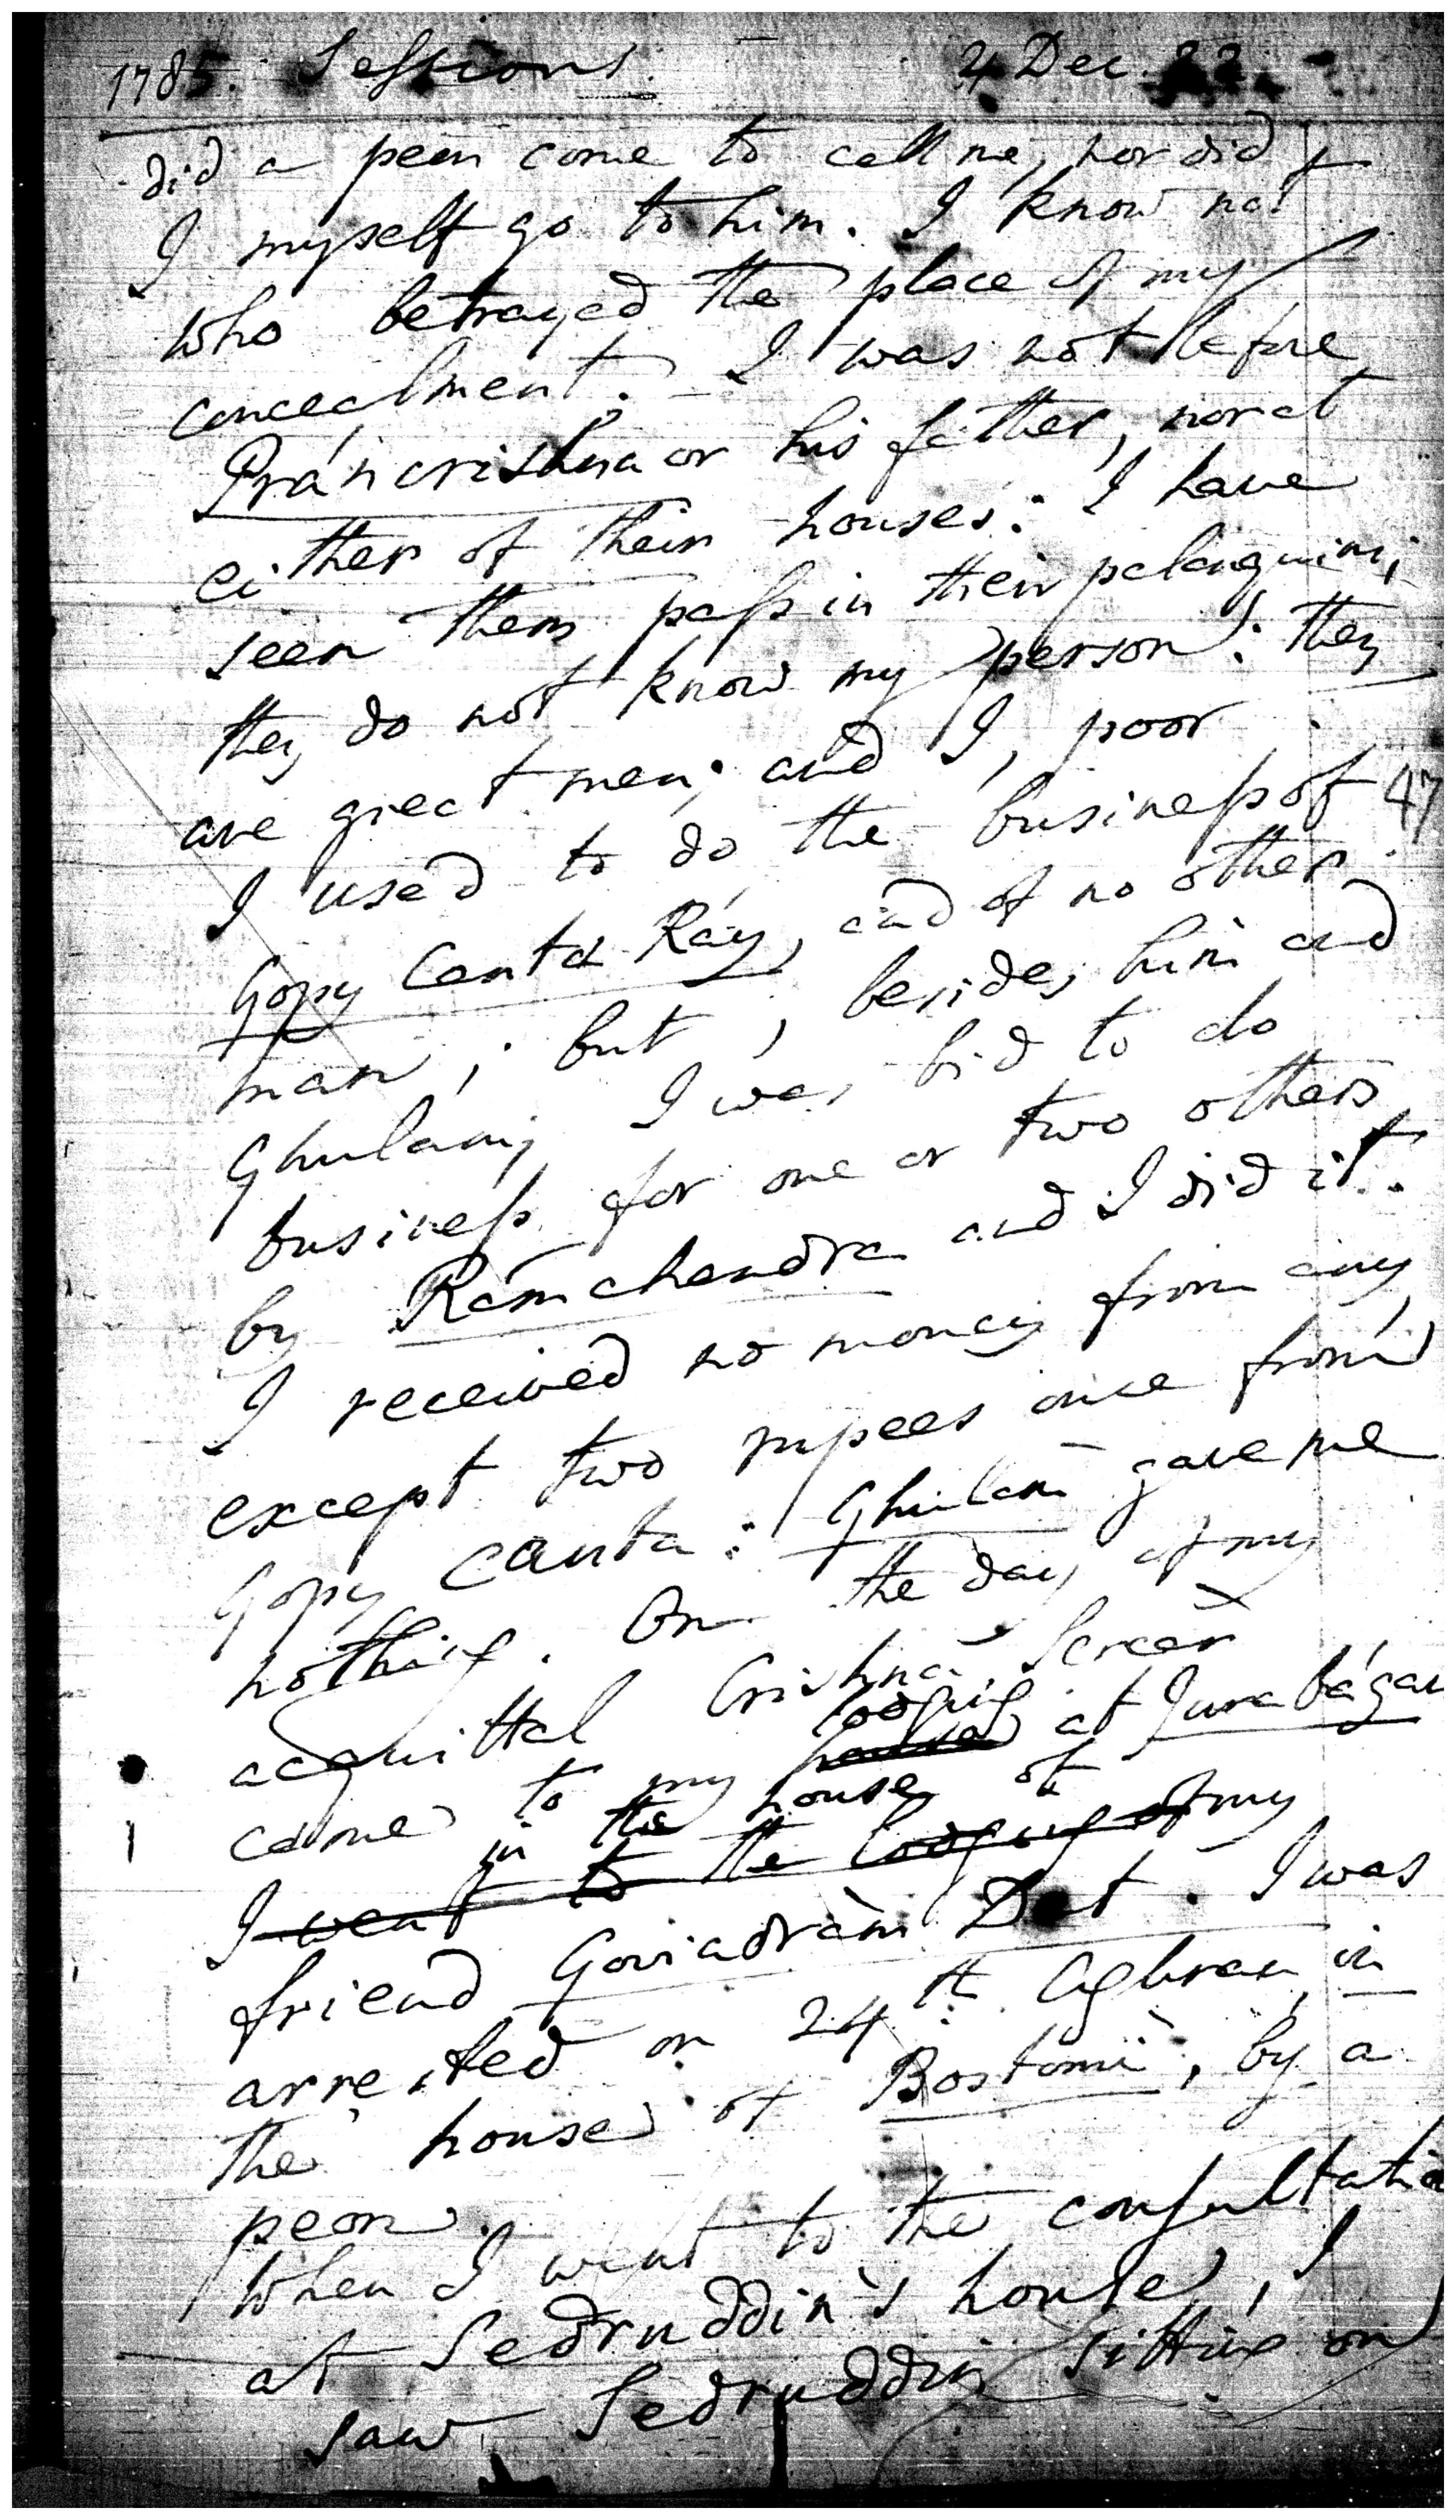 1785. Sessions. 4 Dec. 22
did a peon come to call me, nor did
I myself go to him. I know not
who betrayed the place of my
concealment. I was not before
Práncrishna or his father, nor at
either of their houses: I have
seen them paſs in their palanquins;
they do not know my person: they
are great men; and I, poor.
I used to do the busineſs of 47
Gopy Canta Ráy, and of no other
man; but, besides him and
Ghulam, I was bid to do
busineſs for one or two others
by Rámchandra and I did it.
I received no money from any,
except two rupees once from
Gopy Canta: Ghulam gave me
nothing. On the day of my
acquittal Crishna Sercar
lodging
came to my house at Jurabágan
in the house of
I went to the lodging of my
friend Govindrám Dat. I was
arrested on 24th Aghran, in
the house of Bostomi, by a
peon.
When I went to the conſultation
at Sedruddin's houſe, I
saw Sedruddin sitting on